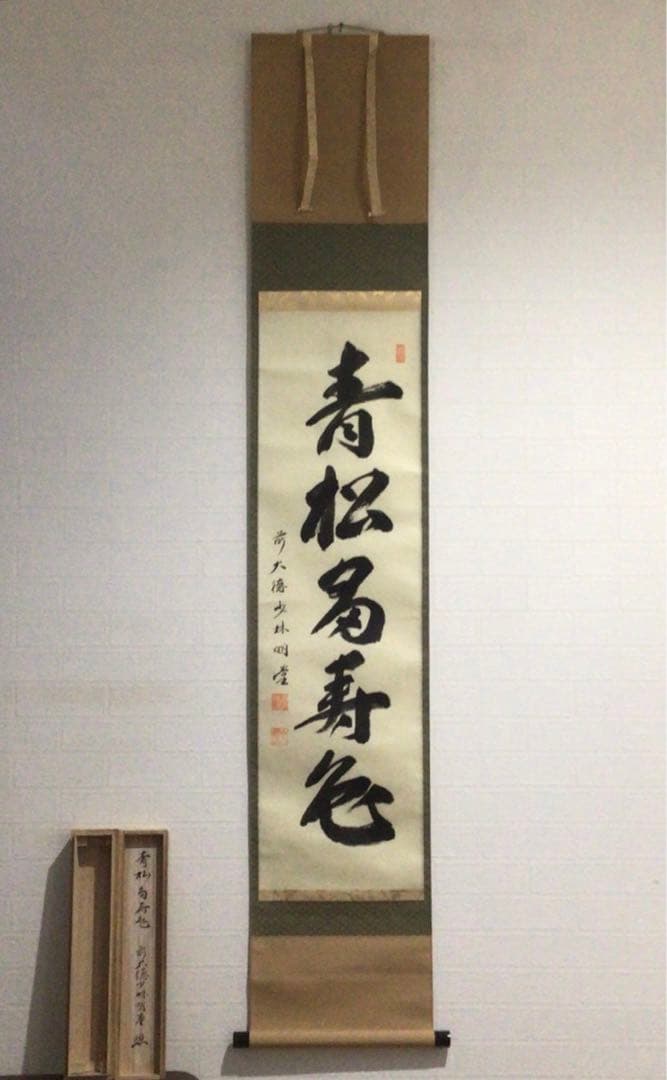 青松多寿色
前大徳少林明堂
青松多寿色 前大徳少林明堂